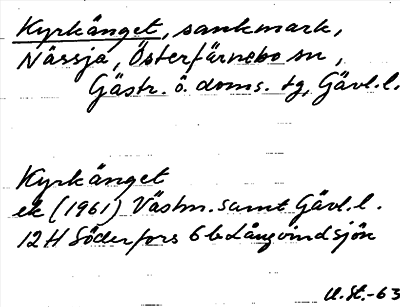 Kyrkänget, sankmark,
Nässja, Österfärnebo sn,
Gästr. ö. doms. tg, Gävl.l.
Kyrkänget
ek (1961) Västm. samt Gävl.l.
12H Söderfors 6b Långvindsjön
U.St.-63